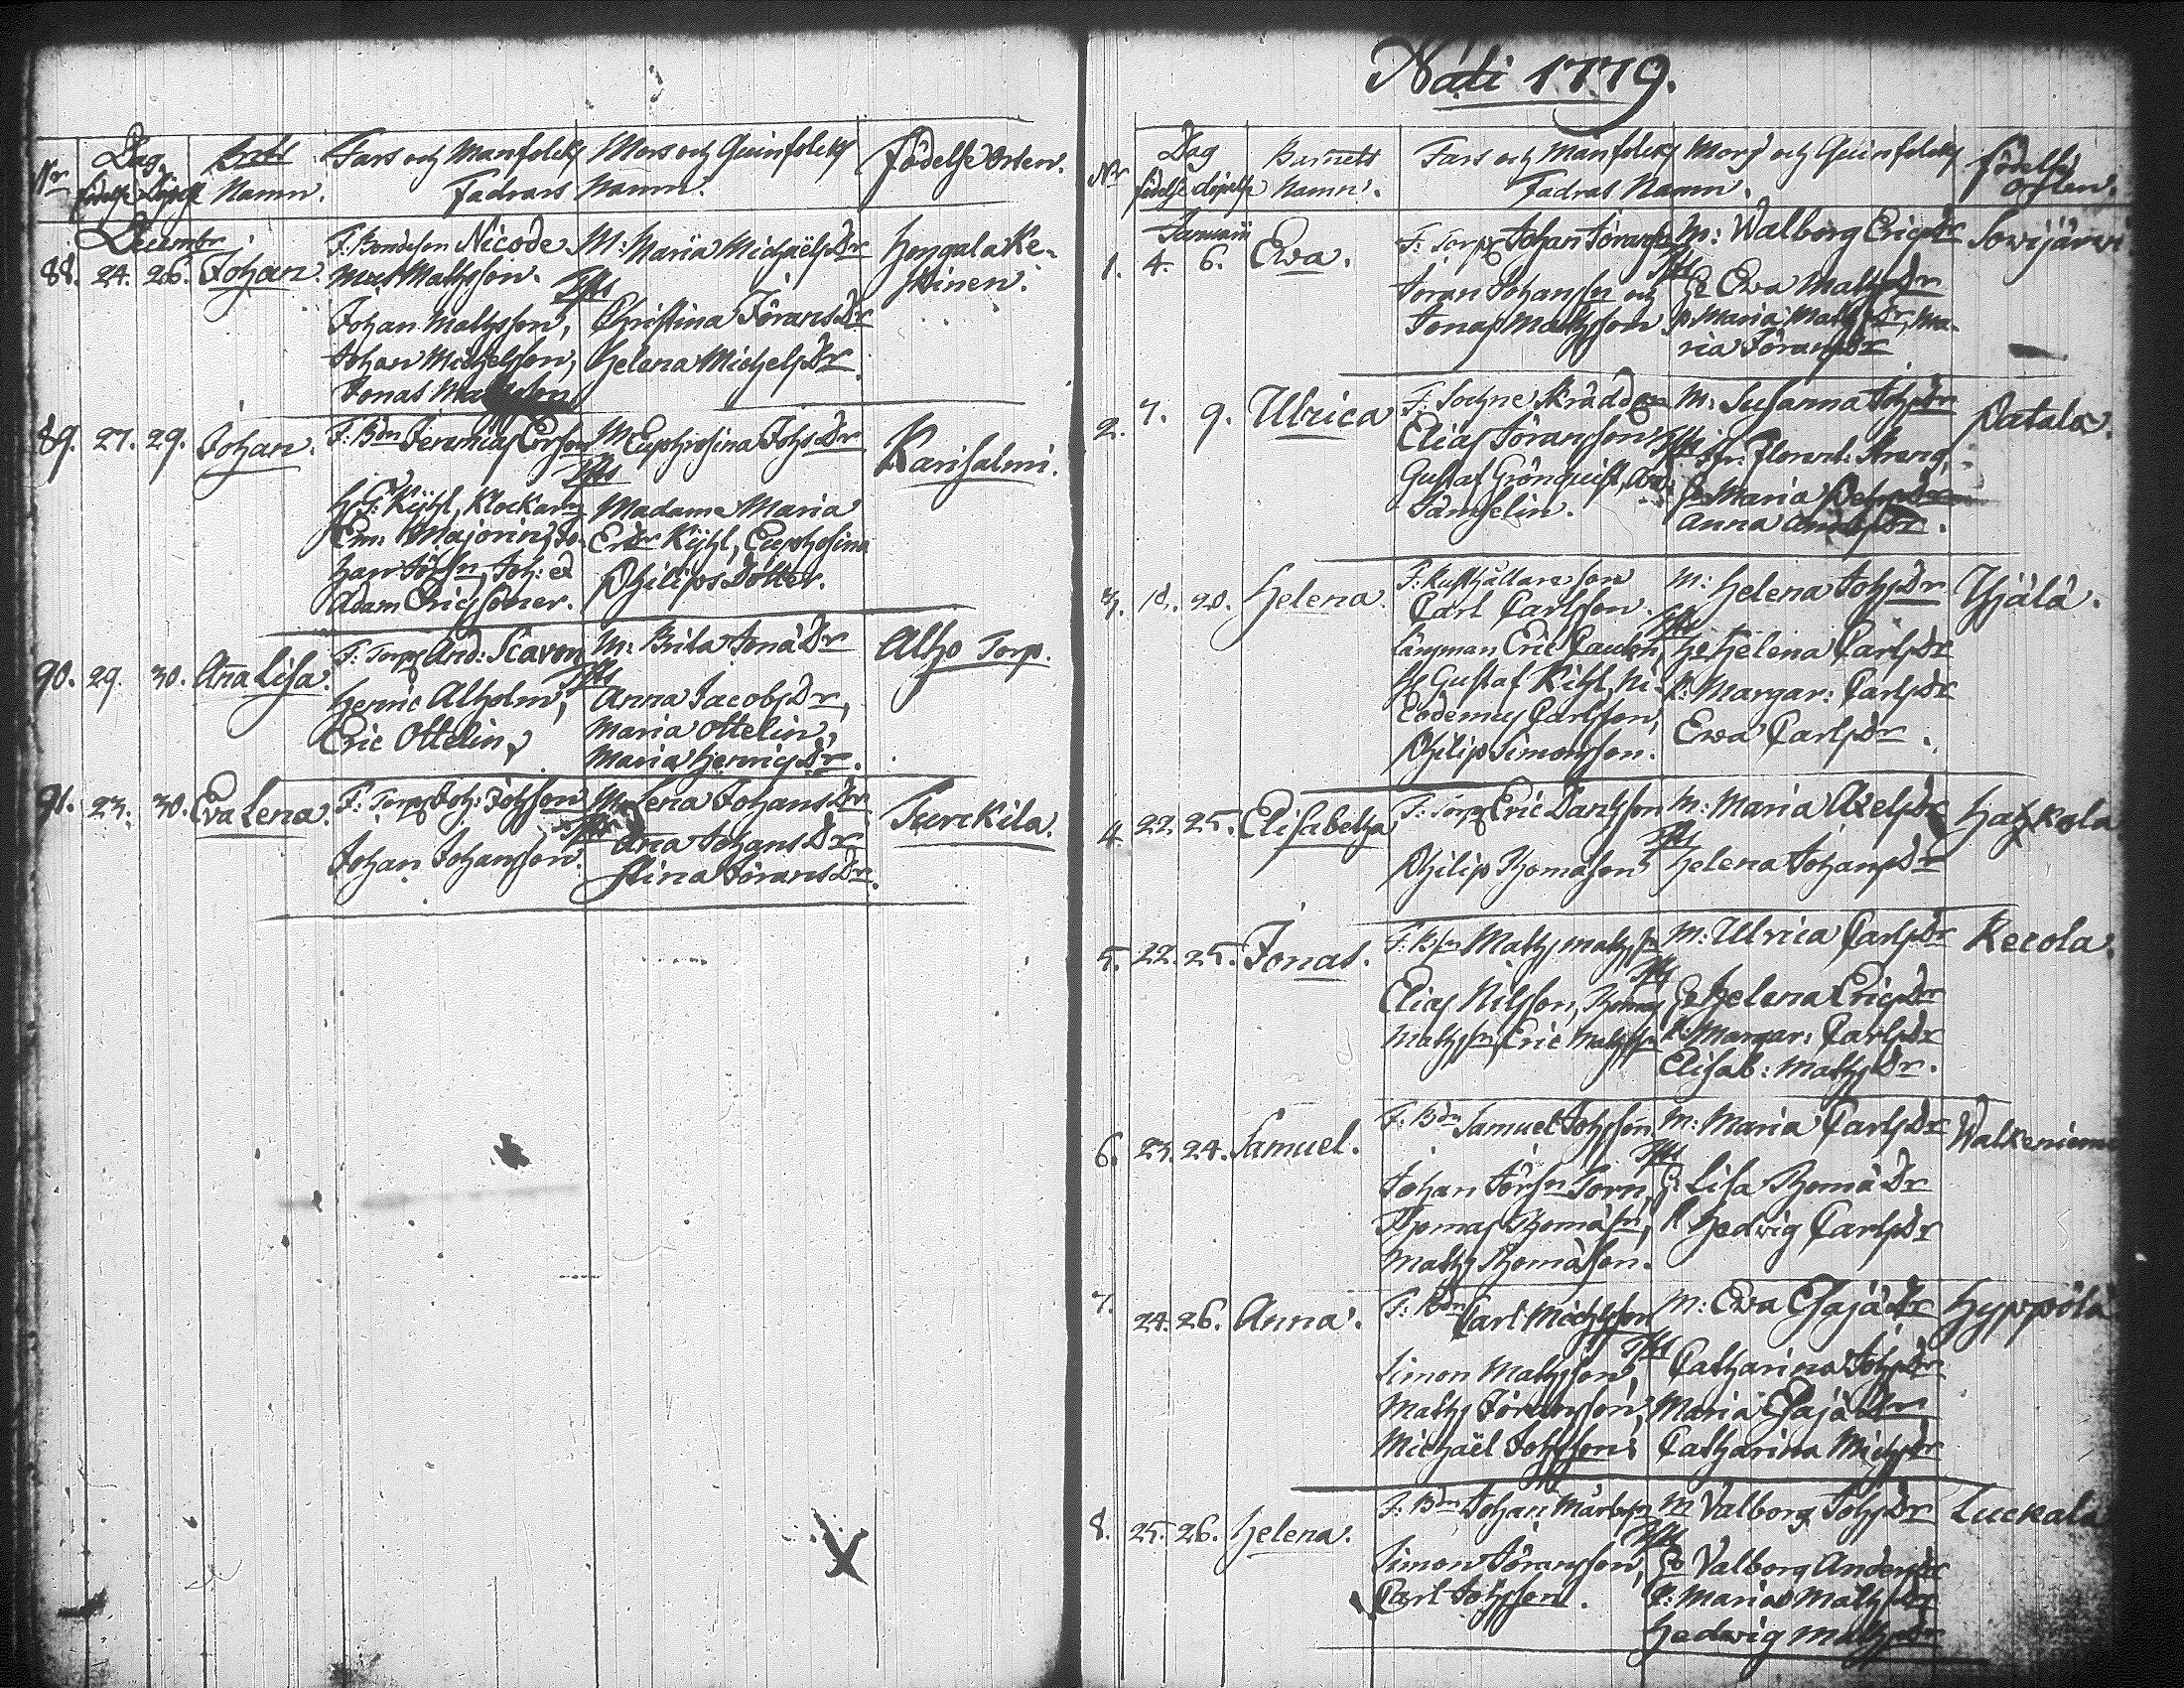 Nr
Dag
födelse döpelse
Barns
Namn.
Fars och Manfolks
Fadrars
Mors och Quinfolks
Namn.
födelse Orten.
Decembr
88. 24. 26. Johan.
F: Bondeson Nicode-
mus Mathsson.
Tts
Johan Mathsson,
Johan Michelsson,
Jonas
M: Maria Michaëls Dr
Christina Jörans Dr
Helena Michels Dr
Hongala Ke-
skinen.
89. 27. 29. Johan.
F: Bdn Jeremias Ersson
Tts
H. F: Kyhl, Klockarn
Em: Majorin, Jo-
han Jörsn, Joh: ed
Adam Ericssöner.
M: Euphrosina Johs Dr
Madame Maria
Ersdr Kyhl, Euphosina
Philips Dotter.
Karisalmi.
90. 29. 30. Aña Lisa.
F: Torp And: Scavon
Tts
Henric Alholm,
Eric Ottelin,
M: Brita Jonä Dr
Anna Jacobs Dr,
Maria Ottelin,
Maria Henrics Dr.
Alho Torp.
91. 23. 30. Eva Lena.
F: Torp Joh: Johsson
Tts
Johan Johansson.
M: Lena Johans Dr
Aña Johans Dr
Stina Jörans Dr.
Turckila.
Nati 1779.
Nr
Dag
födelse döpelse
Barnets
Namn.
Fars och Manfolks Mors och Quinfolks
Fadras Namn.
födelse
Orten.
Januarii
1. 4. 6. Ewa.
F: Torp Johan Joransson
Tts
Joran Johanssn och
Jonas Mathsson
M: Walborg Erics Dr
H: Ewa Maths Dr
P. Maria Maths Dr, Ma-
ria Jorans Dr
Sowijärwi
2. 7. 9. Ulrica
F: Sochne Skräddaren
Elias Joransson
Tts
Gustaf Grönquist,
Tamelin.
M: Susanna Johs Dr
Maria
Anna Anders Dr.
Patala.
3. 18. 20. Helena.
F: Rusthållare son
Carl Carlsson.
Tts
Länsman Eric
H. Gustaf Kihl, Ni-
codemus Carlsson,
Philip Simonsson.
M: Helena Johs Dr
H: Helena Carls Dr
P: Margar: Carls Dr
Ewa Carls Dr.
Thjälä.
4. 22. 25. Elisabetha
F: Torp Eric Danielsson
Tts
Philip Thomasson
M: Maria Axels Dr
Helena Johans Dr
Hatzkola
5. 22. 25. Jonas.
F: Bsn Maths Mathssn
Tts
Elias Nilsson, Thomas
Mathssn, Eric Mathssn
M: Ulrica Carls Dr
H: Helena Erics Dr
P: Margar: Carls Dr
Elisab: Maths Dr.
Kecola.
6. 23. 24. Samuel.
F: Bdn Samuel Johsson
Tts
Johan Jörsn Torn,
Thomas Thomäsn,
Maths Thomäson.
M: Maria Carls Dr
H: Lisa Thomä Dr
P. Hedwig Carls Dr
Walkeniemi
7. 24. 26. Anna.
F: Bdn Carl Michelsson
Tts
Simon Mathsson,
Maths Joransson,
Michaël Johsson.
M: Ewa Esajä Dr
Catharina Johs Dr
Maria Esajä Dr
Catharina Michs Dr
Hyppölä
8. 25. 26. Helena.
F: Bdn Johan Mårtenssn
Tts
Simon Joransson,
Carl Johsson.
M Valborg Johs Dr
H: Valborg Anders Dr
P: Maria Maths Dr
Hedwig Maths Dr
Luckala